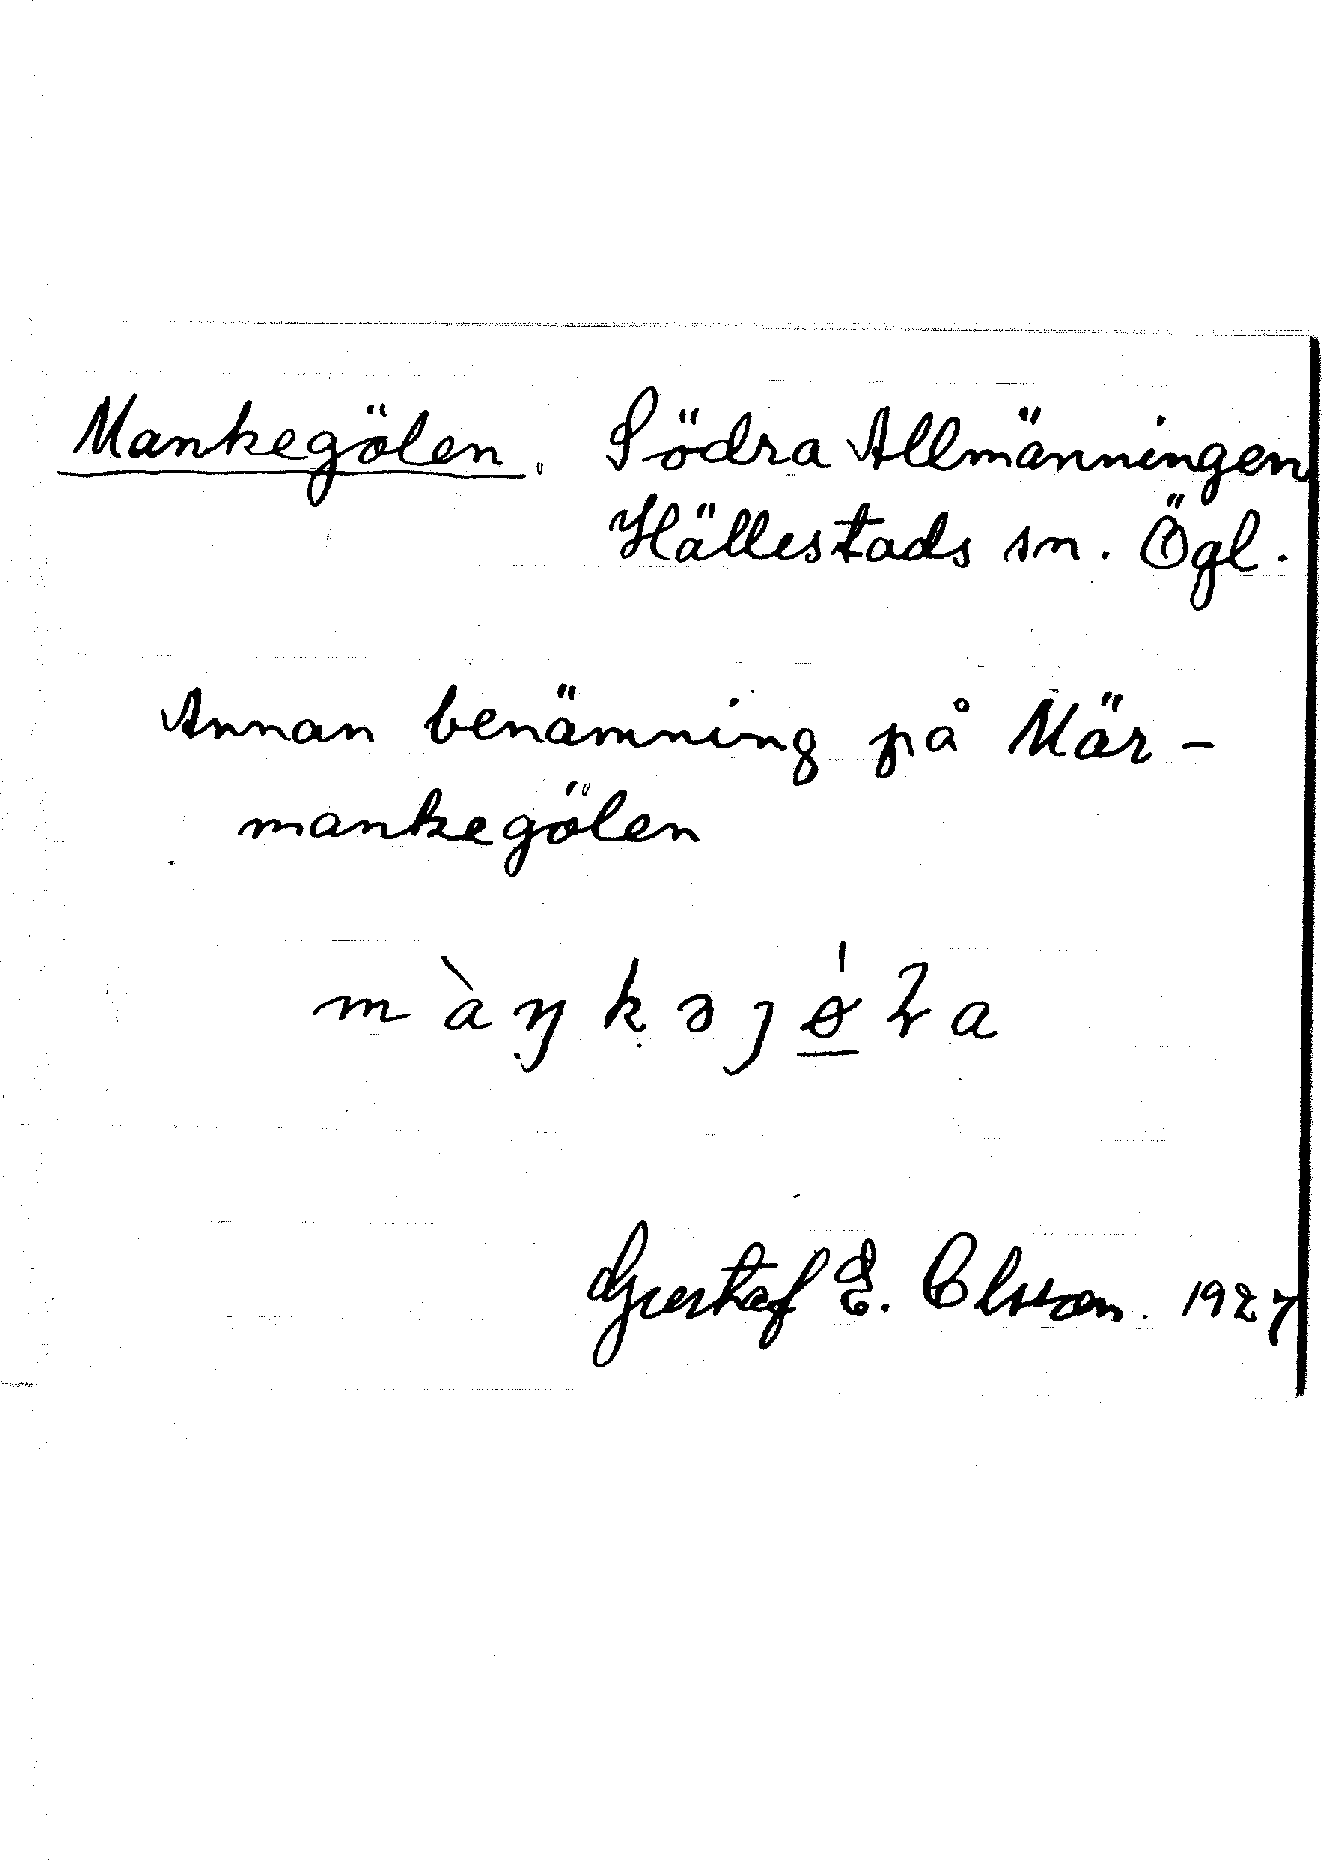 Mankegölen. Södra Allmänningen
Hällestads sn. Ögl.
Annan benämning på Mär-
mankegölen
màŋkəȷǿɽa
Gustaf E. Olsson. 1927